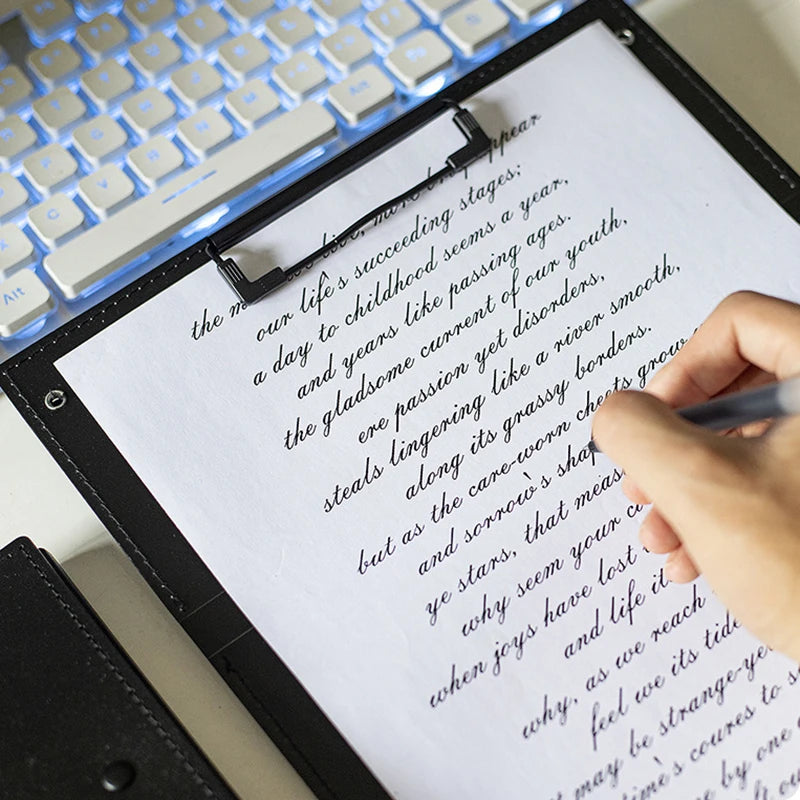 Alt
Alt
the live, more appear
our life's succeeding stages;
a day to childhood seems a year,
and years like passing ages.
the gladsome current of our youth,
ere passion yet disorders,
steals lingering like a river smooth,
along its grassy borders.
but as the care-worn cheets grow
and sorrow's
ye stars, that
why seem your
when joys have lost
and life
why, as we reach
feel we its tide
may be
time's coures to
by one